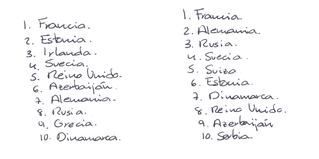 1. Francia.
2. Estonia.
3. Irlanda.
4. Suecia.
5. Reino Unido.
6. Azerbaiján.
7. Alemania.
8. Rusia.
9. Grecia.
10. Dinamarca.
1. Francia
2. Alemania.
3. Rusia.
4. Suecia
5. Suiza
6. Estonia.
7. Dinamarca.
8. Reino Unido.
9. Azerbaiján
10. Serbia.